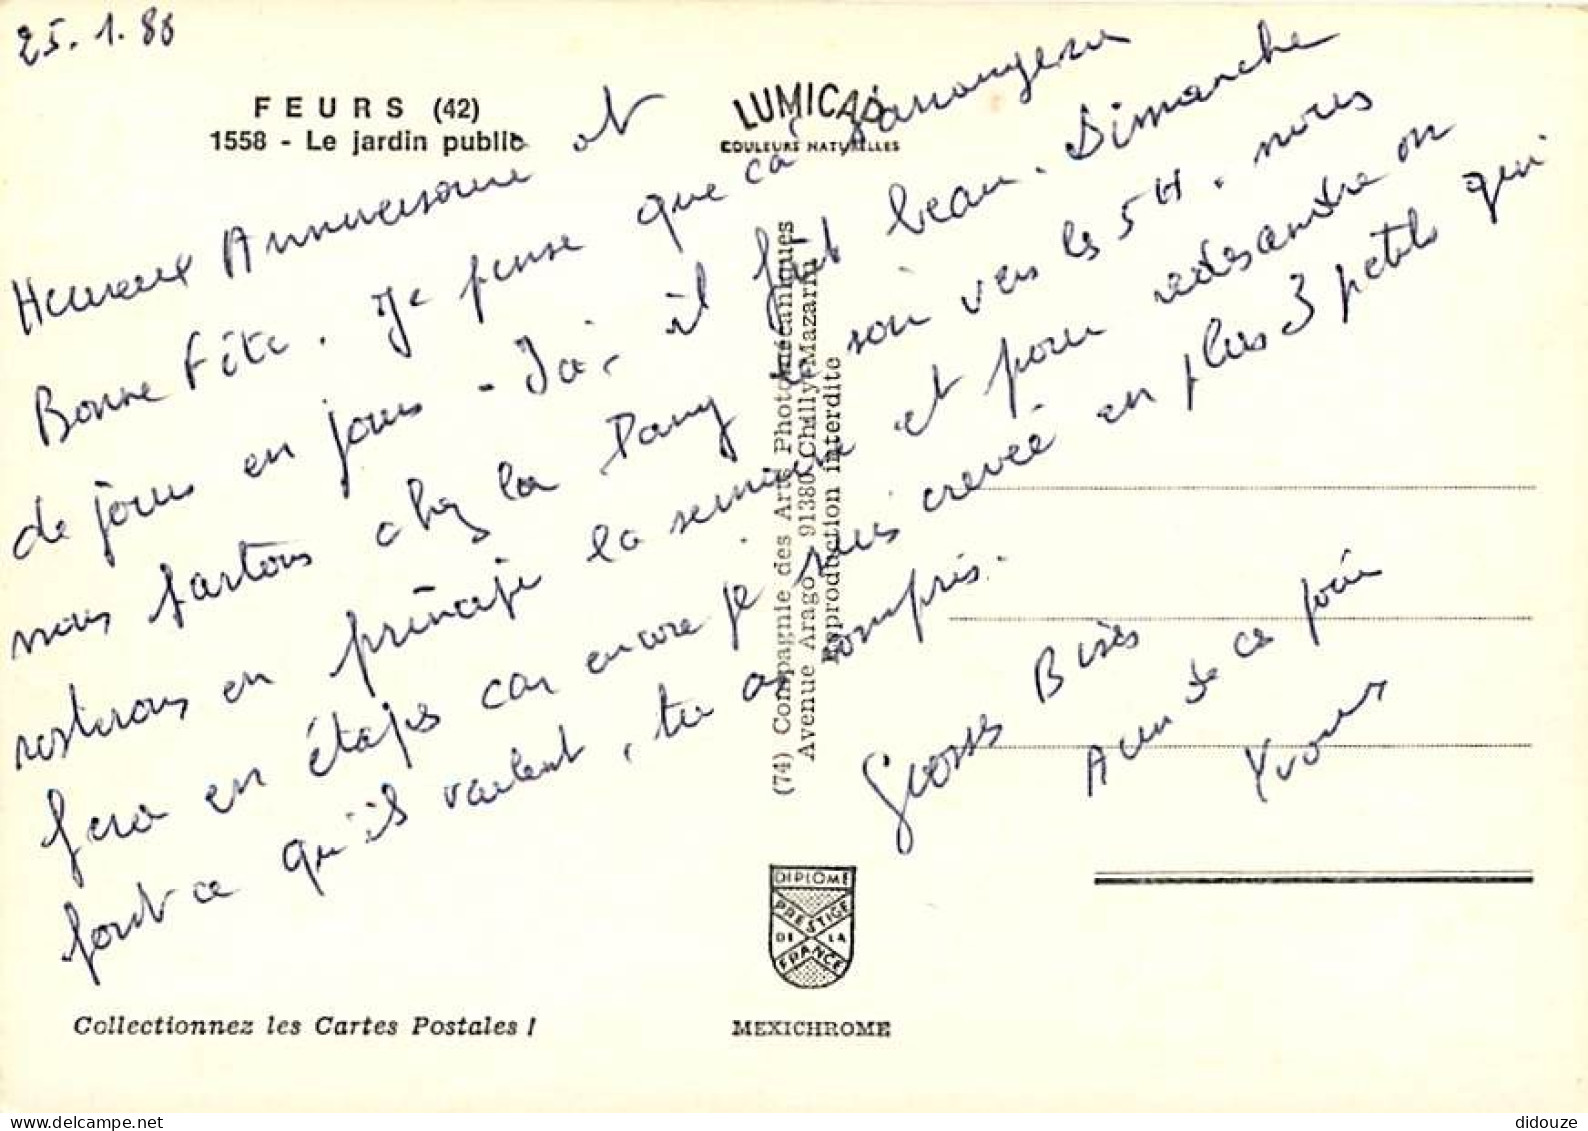 25.1.86
FEURS (42)
1558 - Le jardin public
LUMICAP
COULEURS NATURELLES
Heureux Anniversaire et
Bonne Fête. Je pense que ca s'arrangera
de jours en jours - Ici, il fait beau. Dimanche
nous partons chez la Dany le soir vers les 5H. nous
resterons en principe la semaine et pour redesandre on
fera en étapes car encore je suis crevée en plus 3 petits qui
font ce qu'ils veulent, tu as compris.
Grosses Bises
A un de ces
Yvonne
(74) Compagnie des Arts Photomécaniques
Avenue Arago 91380 Chilly-Mazarin
Reproduction interdite
DIPLOME
PRESTIGE
DE LA
FRANCE
Collectionnez les Cartes Postales !
MEXICHROME
didouze